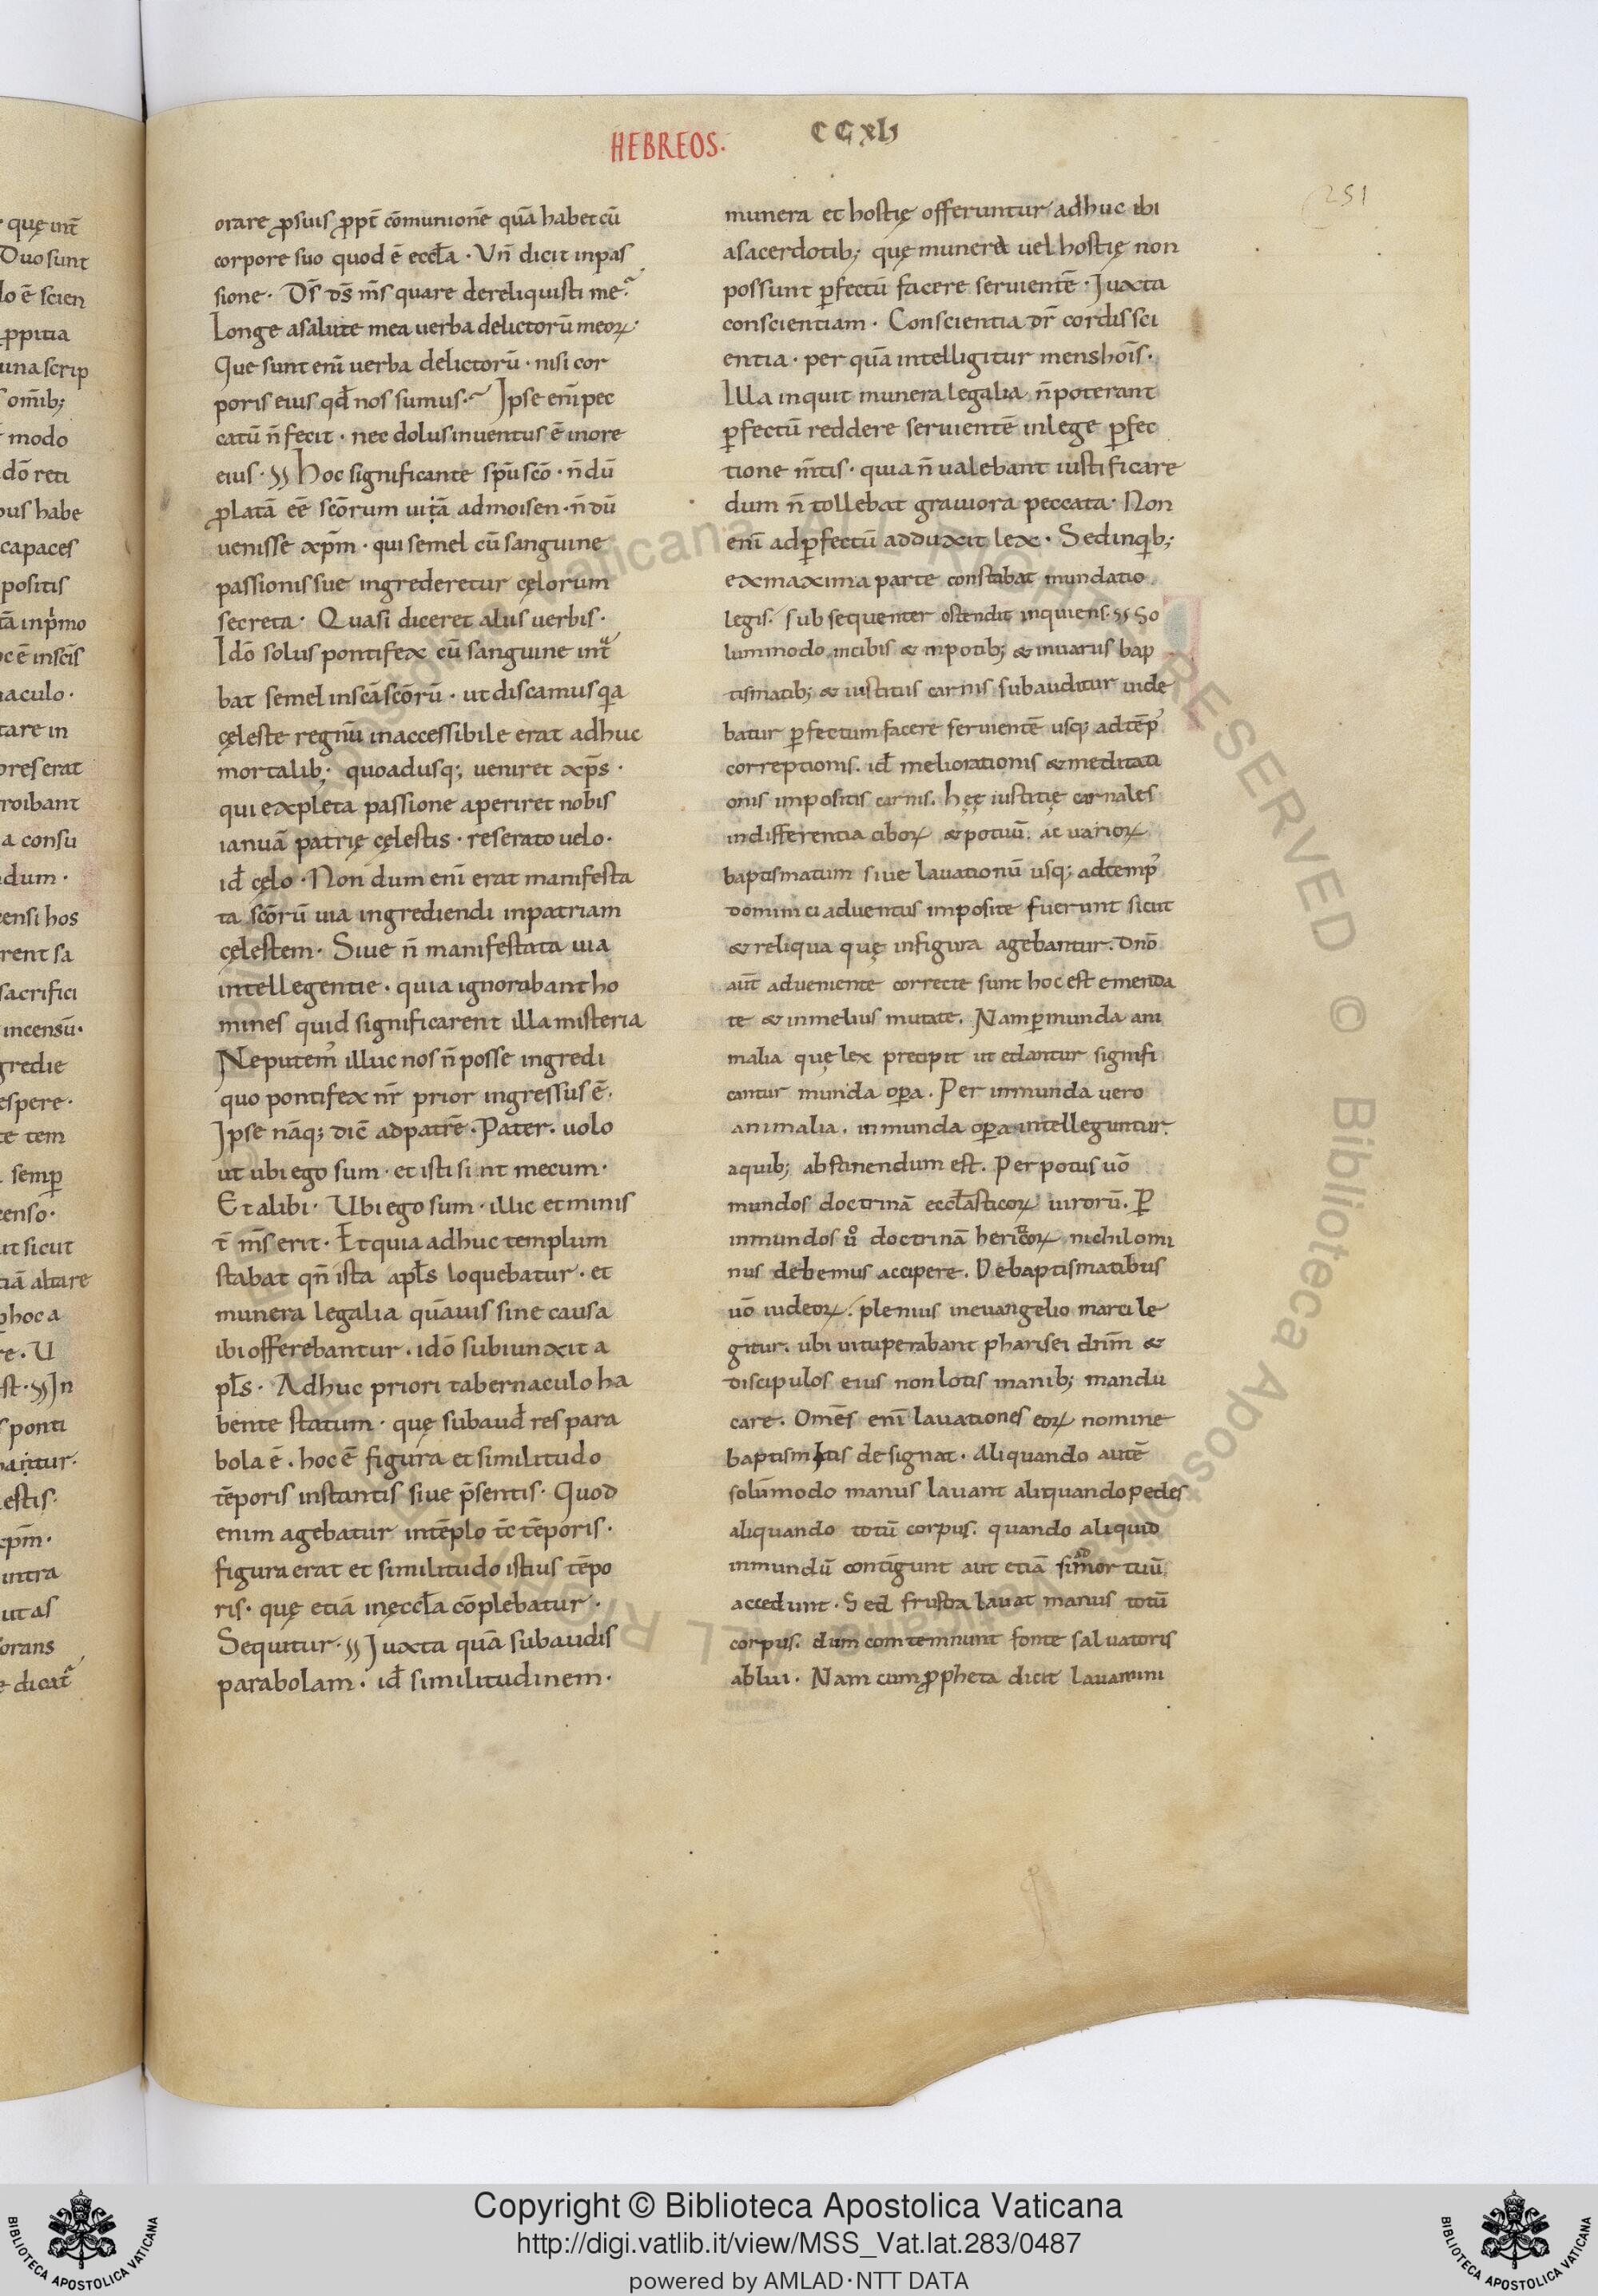 HEBREOS.
CCXLI
251
orare ꝓsuis ꝓpt̄ cōmunionē quā habet cū
corpore suo quod ē eccl̄a · Vn̄ dicit inpas
sione · Ds̄ ds̄ m̄s quare dereliquisti me?
Longe asalute mea uerba delictorū meoꝝ·
Que sunt eni̅ uerba delictorū · nisi cor
poris eius qd̄ nos sumus · Ipse eni̅ pec
catū n̄ fecit · nec dolus inuentus ē inore
eius · Hoc significante sp̄u sc̄o · n̄ dū
ꝓlatā eē sc̄orum uitā admoisen · n̄ dū
uenisse xp̄m · qui semel cū sanguine
passionis sue ingrederetur cęlorum
secreta · Quasi diceret aliis uerbis ·
Idō solus pontifex cū sanguine int̄
bat semel insc̄a sc̄orū · ut discamus qa
cęleste regnū inaccessibile erat adhuc
mortalib; quoadusq; ueniret xp̄s ·
qui expleta passione aperiret nobis
ianuā patrię cęlestis · reserato uelo ·
id̄ cęlo · Non dum eni̅ erat manifesta
ta sc̄orū uia ingrediendi inpatriam
cęlestem · Siue n̄ manifestata uia
intellegentie · quia ignorabant ho
mines quid significarent illa misteria
Neputem᾿ illuc nos n̄ posse ingredi
quo pontifex nr̄ prior ingressus ē·
Ipse nāq; dic̄ adpatrē · Pater · uolo
ut ubi ego sum · et isti sint mecum ·
Et alibi · Ubi ego sum · illic et minis
t̄ m̄s erit · Et quia adhuc templum
stabat qn̄ ista apl̄s loquebatur · et
munera legalia quāuis sine causa
ibi offerebantur · idō subiunxit a
pl̄s · Adhuc priori tabernaculo ha
bente statum · quę subaud̄ res para
bola ē · hoc ē figura et similitudo
tēporis instantis siue p̄sentis · Quod
enim agebatur intēplo tc̄ tēporis ·
figura erat et similitudo istius tēpo
ris · quę etiā ineccl̄a cōplebatur ·
Sequitur · Iuxta quā subaudis
parabolam · id̄ similitudinem ·
munera et hostię offeruntur adhuc ibi
asacerdotib; quę munera uel hostię non
possunt ꝑfectū facere seruientē · Iuxta
conscientiam · Conscientia dr̄ cordis sci
entia · per quā intelligitur mens hoi̅s ·
Illa inquit munera legalia n̄ poterant
ꝑfectū reddere seruientē inlege ꝑfec
tione m̄tis · quia n̄ ualebant iustificare
dum n̄ tollebat grauiora peccata · Non
eni̅ adꝑfectū adduxit lex · Sed inqib;
exmaxima parte constabat mundatio
legis · subsequenter ostendit inquiens · So
lummodo incibis & inpotib; & inuariis bap
tismatib; & iustitiis carnis subauditur uide
batur ꝑfectum facere seruientē usq; adtēp᾿
correptionis. id̄ meliorationis & meditati
onis impositis carnis. hęę iustitię carnales
indifferentia ciboꝝ & potuū. ac varioꝝ
baptismatum siue lauationū usq; adtemp᾿
dominici aduentus imposite fuerunt sicut
& reliqua quę infigura agebantur. Dnō
aut̄ adueniente correcte sunt hoc est emenda
te & inmelius mutate. Nam ꝑmunda ani
malia quę lex precipit ut edantur signifi
cantur munda oꝑa. Per inmunda uero
animalia. inmunda oꝑa intelleguntur.
aquib; abstinendum est. Per potus uō
mundos doctrinā eccl̄asticoꝝ uirorū. Ꝑ
inmundos uͦ doctrinā hericoꝝ nichilomi
nus debemus accipere. De baptismatibus
uō iudeoꝝ. plenius ineuangelio marci le
gitur. ubi uituperabant pharisei dnm̄ &
discipulos eius non lotis manib; mandu
care. Omēs eni̅ lauationes eoꝝ nomine
baptismatis designat · Aliquando autē
solūmodo manus lauant aliquando pedes
aliquando totū corpus. quando aliquid
inmundū contigunt aut etiā si ad mortuū
accedunt · Sed frustra lauat manus totū
corpus. dum comtemnunt fonte saluatoris
ablui · Nam cum ꝓpheta dicit Lauamini
Copyright © Biblioteca Apostolica Vaticana
http://digi.vatlib.it/view/MSS_Vat.lat.283/0487
powered by AMLAD·NTT DATA
BIBLIOTECA APOSTOLICA VATICANA
BIBLIOTECA APOSTOLICA VATICANA